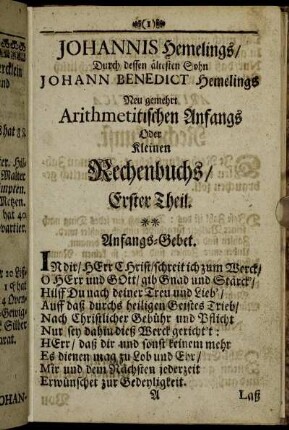 (1)
JOHANNIS Hemelings/
Durch dessen ältesten Sohn
JOHANN BENEDICT Hemelings
Neu gemehrt
Arithmetitischen Anfangs
Oder
Kleinen
Rechenbuchs/
Erster Theil.
**
Anfangs-Gebet.
IN dir/ HErr Christ/ schreit ich zum Werck/
O HErr und GOtt/ gib Gnad und Stärck/
Hilff Du nach deiner Treu und Lieb'/
Auff daß durch heiligen Geistes Trieb/
Nach Christlicher Gebühr und Pflicht
Nur sey dahin dieß Werck gericht't:
HErr/ daß dir und sonst keinem mehr
Es dienen mag zu Lob und Ehr/
Mir und dem Nächsten jederzeit
Erwünschet zur Gedeyligkeit.
A Laß
und
Malter
Metzen.
hat 40
Silber
JOHAN-